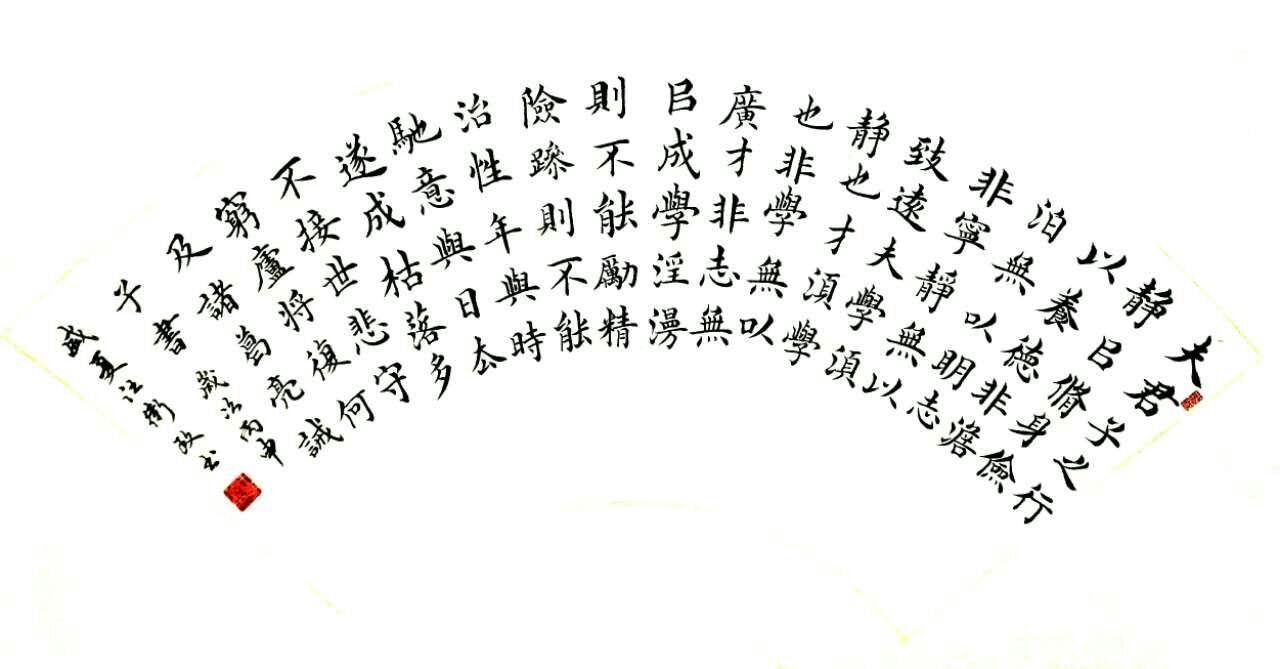 夫君子之行
靜㠯脩身儉
以養德非澹
泊無以明志
非寧靜無以
致遠夫學須
靜也才須學
也非學無以
廣才非志無
㠯成學淫漫
則不能勵精
險躁則不能
治性年與時
馳意與日去
遂成枯落多
不接世悲守
窮廬將復何
及諸葛亮誡
子書 歲次丙申
盛夏汪衛政书